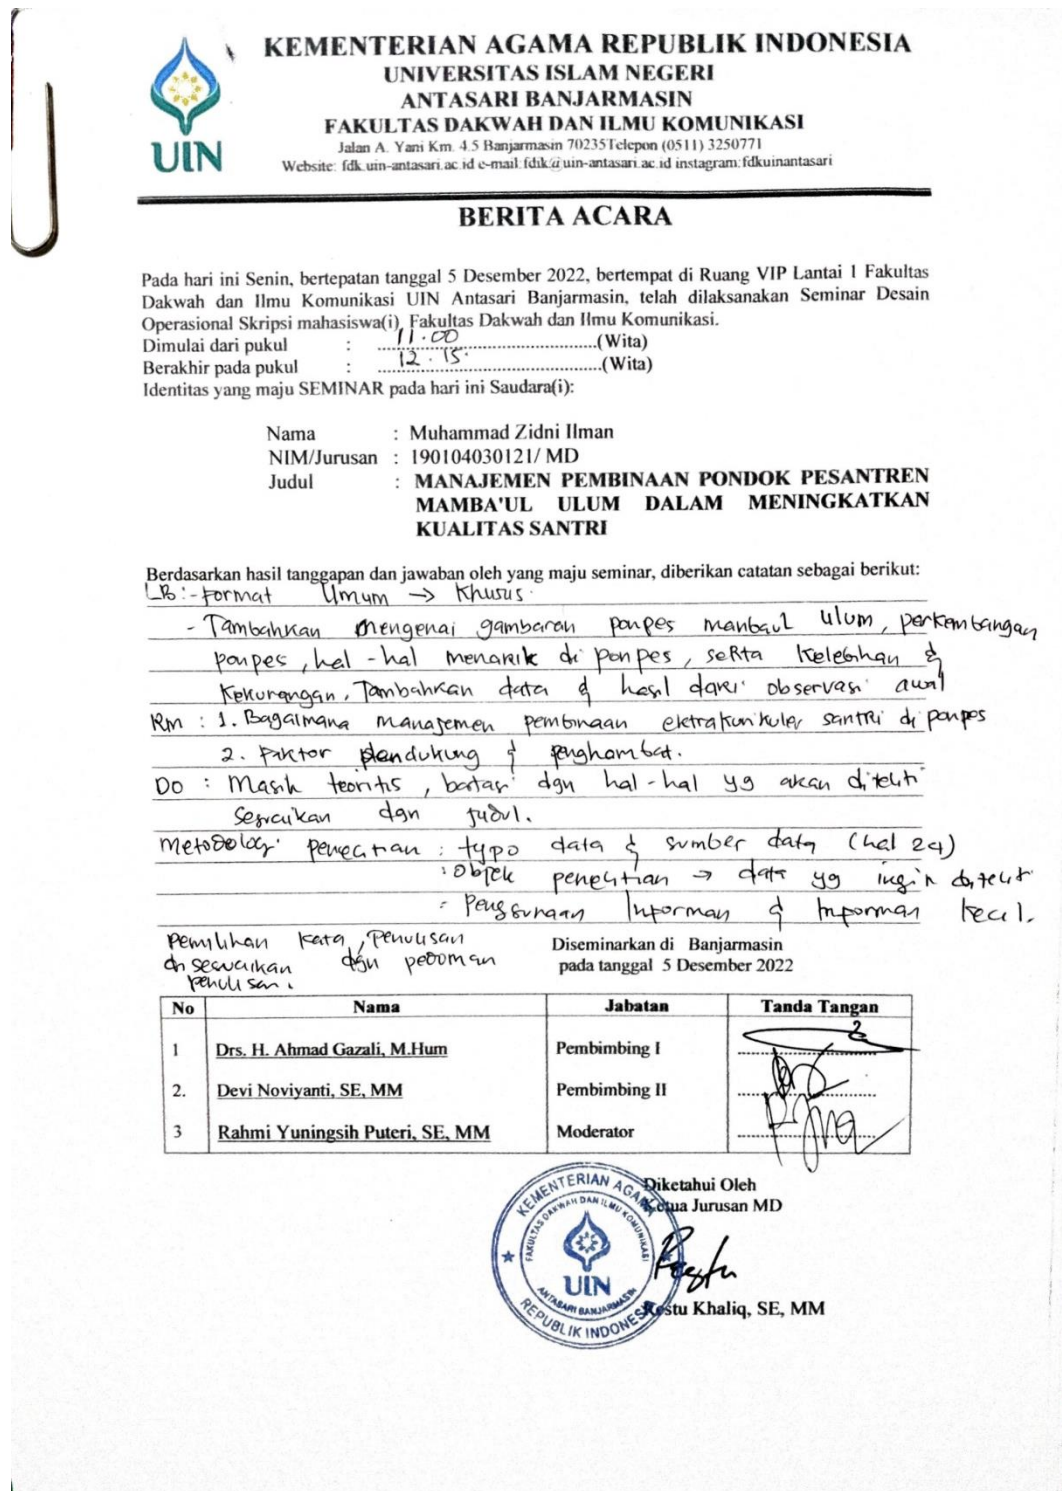 KEMENTERIAN AGAMA REPUBLIK INDONESIA
UNIVERSITAS ISLAM NEGERI
ANTASARI BANJARMASIN
FAKULTAS DAKWAH DAN ILMU KOMUNIKASI
Jalan A. Yani Km. 4.5 Banjarmasin 70235Telepon (0511) 3250771
Website: fdk.uin-antasari.ac.id e-mail:fdik@uin-antasari.ac.id instagram:fdkuinantasari
UIN
BERITA ACARA
Pada hari ini Senin, bertepatan tanggal 5 Desember 2022, bertempat di Ruang VIP Lantai 1 Fakultas
Dakwah dan Ilmu Komunikasi UIN Antasari Banjarmasin, telah dilaksanakan Seminar Desain
Operasional Skripsi mahasiswa(i) Fakultas Dakwah dan Ilmu Komunikasi.
Dimulai dari pukul : 11.00 (Wita)
Berakhir pada pukul : 12.15. (Wita)
Identitas yang maju SEMINAR pada hari ini Saudara(i):
Nama : Muhammad Zidni Ilman
NIM/Jurusan : 190104030121/ MD
Judul : MANAJEMEN PEMBINAAN PONDOK PESANTREN
MAMBA'UL ULUM DALAM MENINGKATKAN
KUALITAS SANTRI
Berdasarkan hasil tanggapan dan jawaban oleh yang maju seminar, diberikan catatan sebagai berikut:
LB : - Format Umum → Khusus.
- Tambahkan mengenai gambaran ponpes manbaul ulum, perkembangan
ponpes, hal - hal menarik di ponpes, seRta kelebihan &
kekurangan. Tambahkan data & hasil dari observasi awal
Rm : 1. Bagaimana manajemen pembinaan ekstrakurikuler santri di ponpes
2. Faktor pendukung & penghambat.
DO : Masih teoritis, batasi dgn hal-hal yg akan diteliti
sesuaikan dgn judul.
Metodologi penelitian : typo data & sumber data (hal 24)
: Objek penelitian → data yg ingin diteliti
: Penggunaan Informan & Informan kecil.
Pemilihan kata, penulisan
disesuaikan dgn pedoman
penulisan.
Diseminarkan di Banjarmasin
pada tanggal 5 Desember 2022
No Nama Jabatan Tanda Tangan
1 Drs. H. Ahmad Gazali, M.Hum Pembimbing I
2. Devi Noviyanti, SE, MM Pembimbing II
3 Rahmi Yuningsih Puteri, SE, MM Moderator
Diketahui Oleh
Ketua Jurusan MD
KEMENTERIAN AGAMA
FAKULTAS DAKWAH DAN ILMU KOMUNIKASI
UIN
ANTASARI BANJARMASIN
REPUBLIK INDONESIA
Restu Khaliq, SE, MM